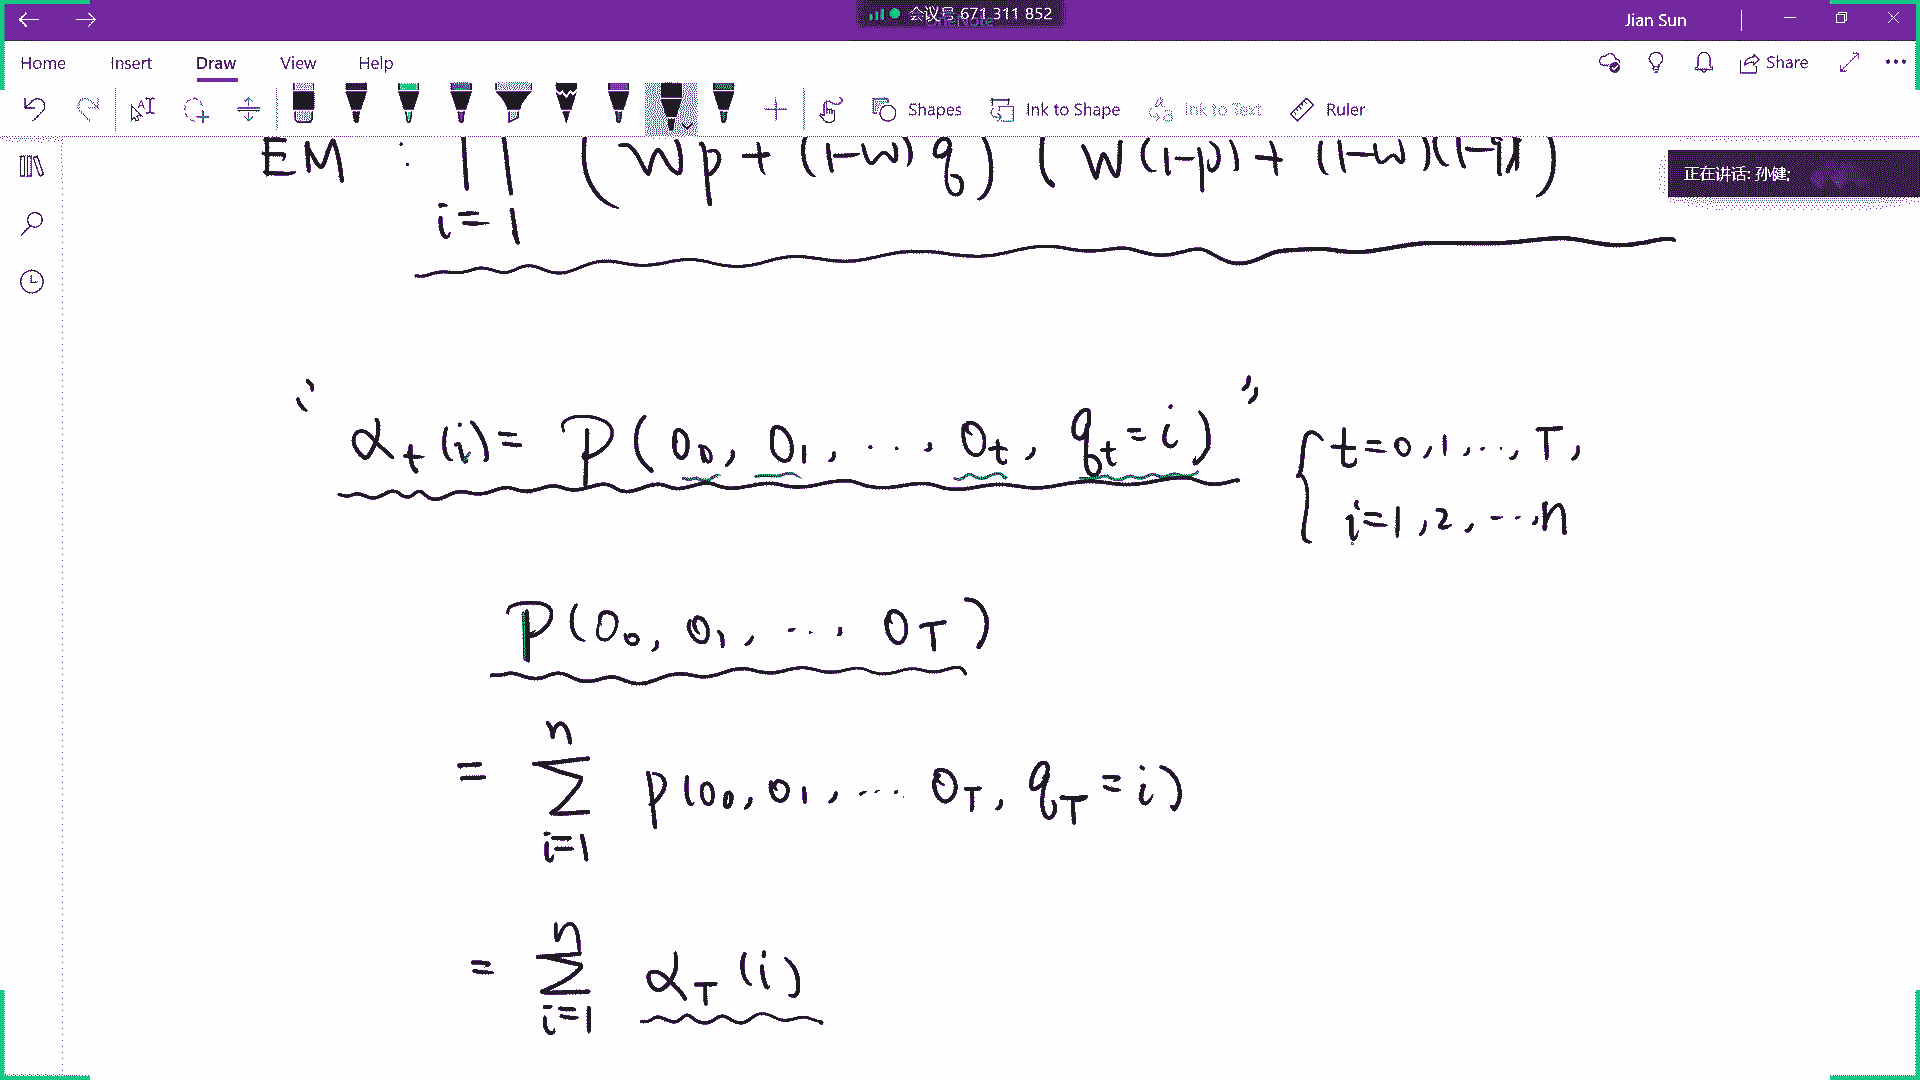 会议号 671 311 852
Jian Sun
Home Insert Draw View Help
Share
Shapes Ink to Shape Ink to Text Ruler
正在讲话: 孙健;
EM : ∏ i=1 (Wp + (1-W) q) (W(1-p) + (1-W)(1-q))
" α_t(i) = P(O_0, O_1, ..., O_t, q_t = i) "
{ t=0,1,..,T,
i=1,2,...,n
P(O_0, O_1, ..., O_T)
= Σ_{i=1}^{n} P(O_0, O_1, ... O_T, q_T = i)
= Σ_{i=1}^{n} α_T(i)